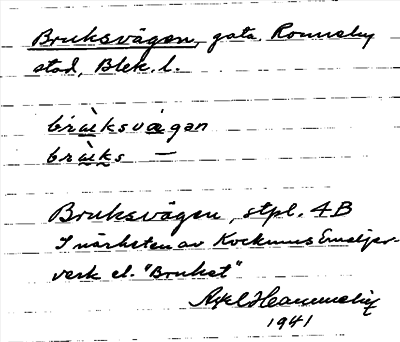 Bruksvägen, gata, Ronneby
stad, Blek. l.
bràiksvägan
bràiks —
Bruksvägen, stpl. 4B
I närheten av Kockums Emaljer-
verk el. "Bruket"
Axel
1941